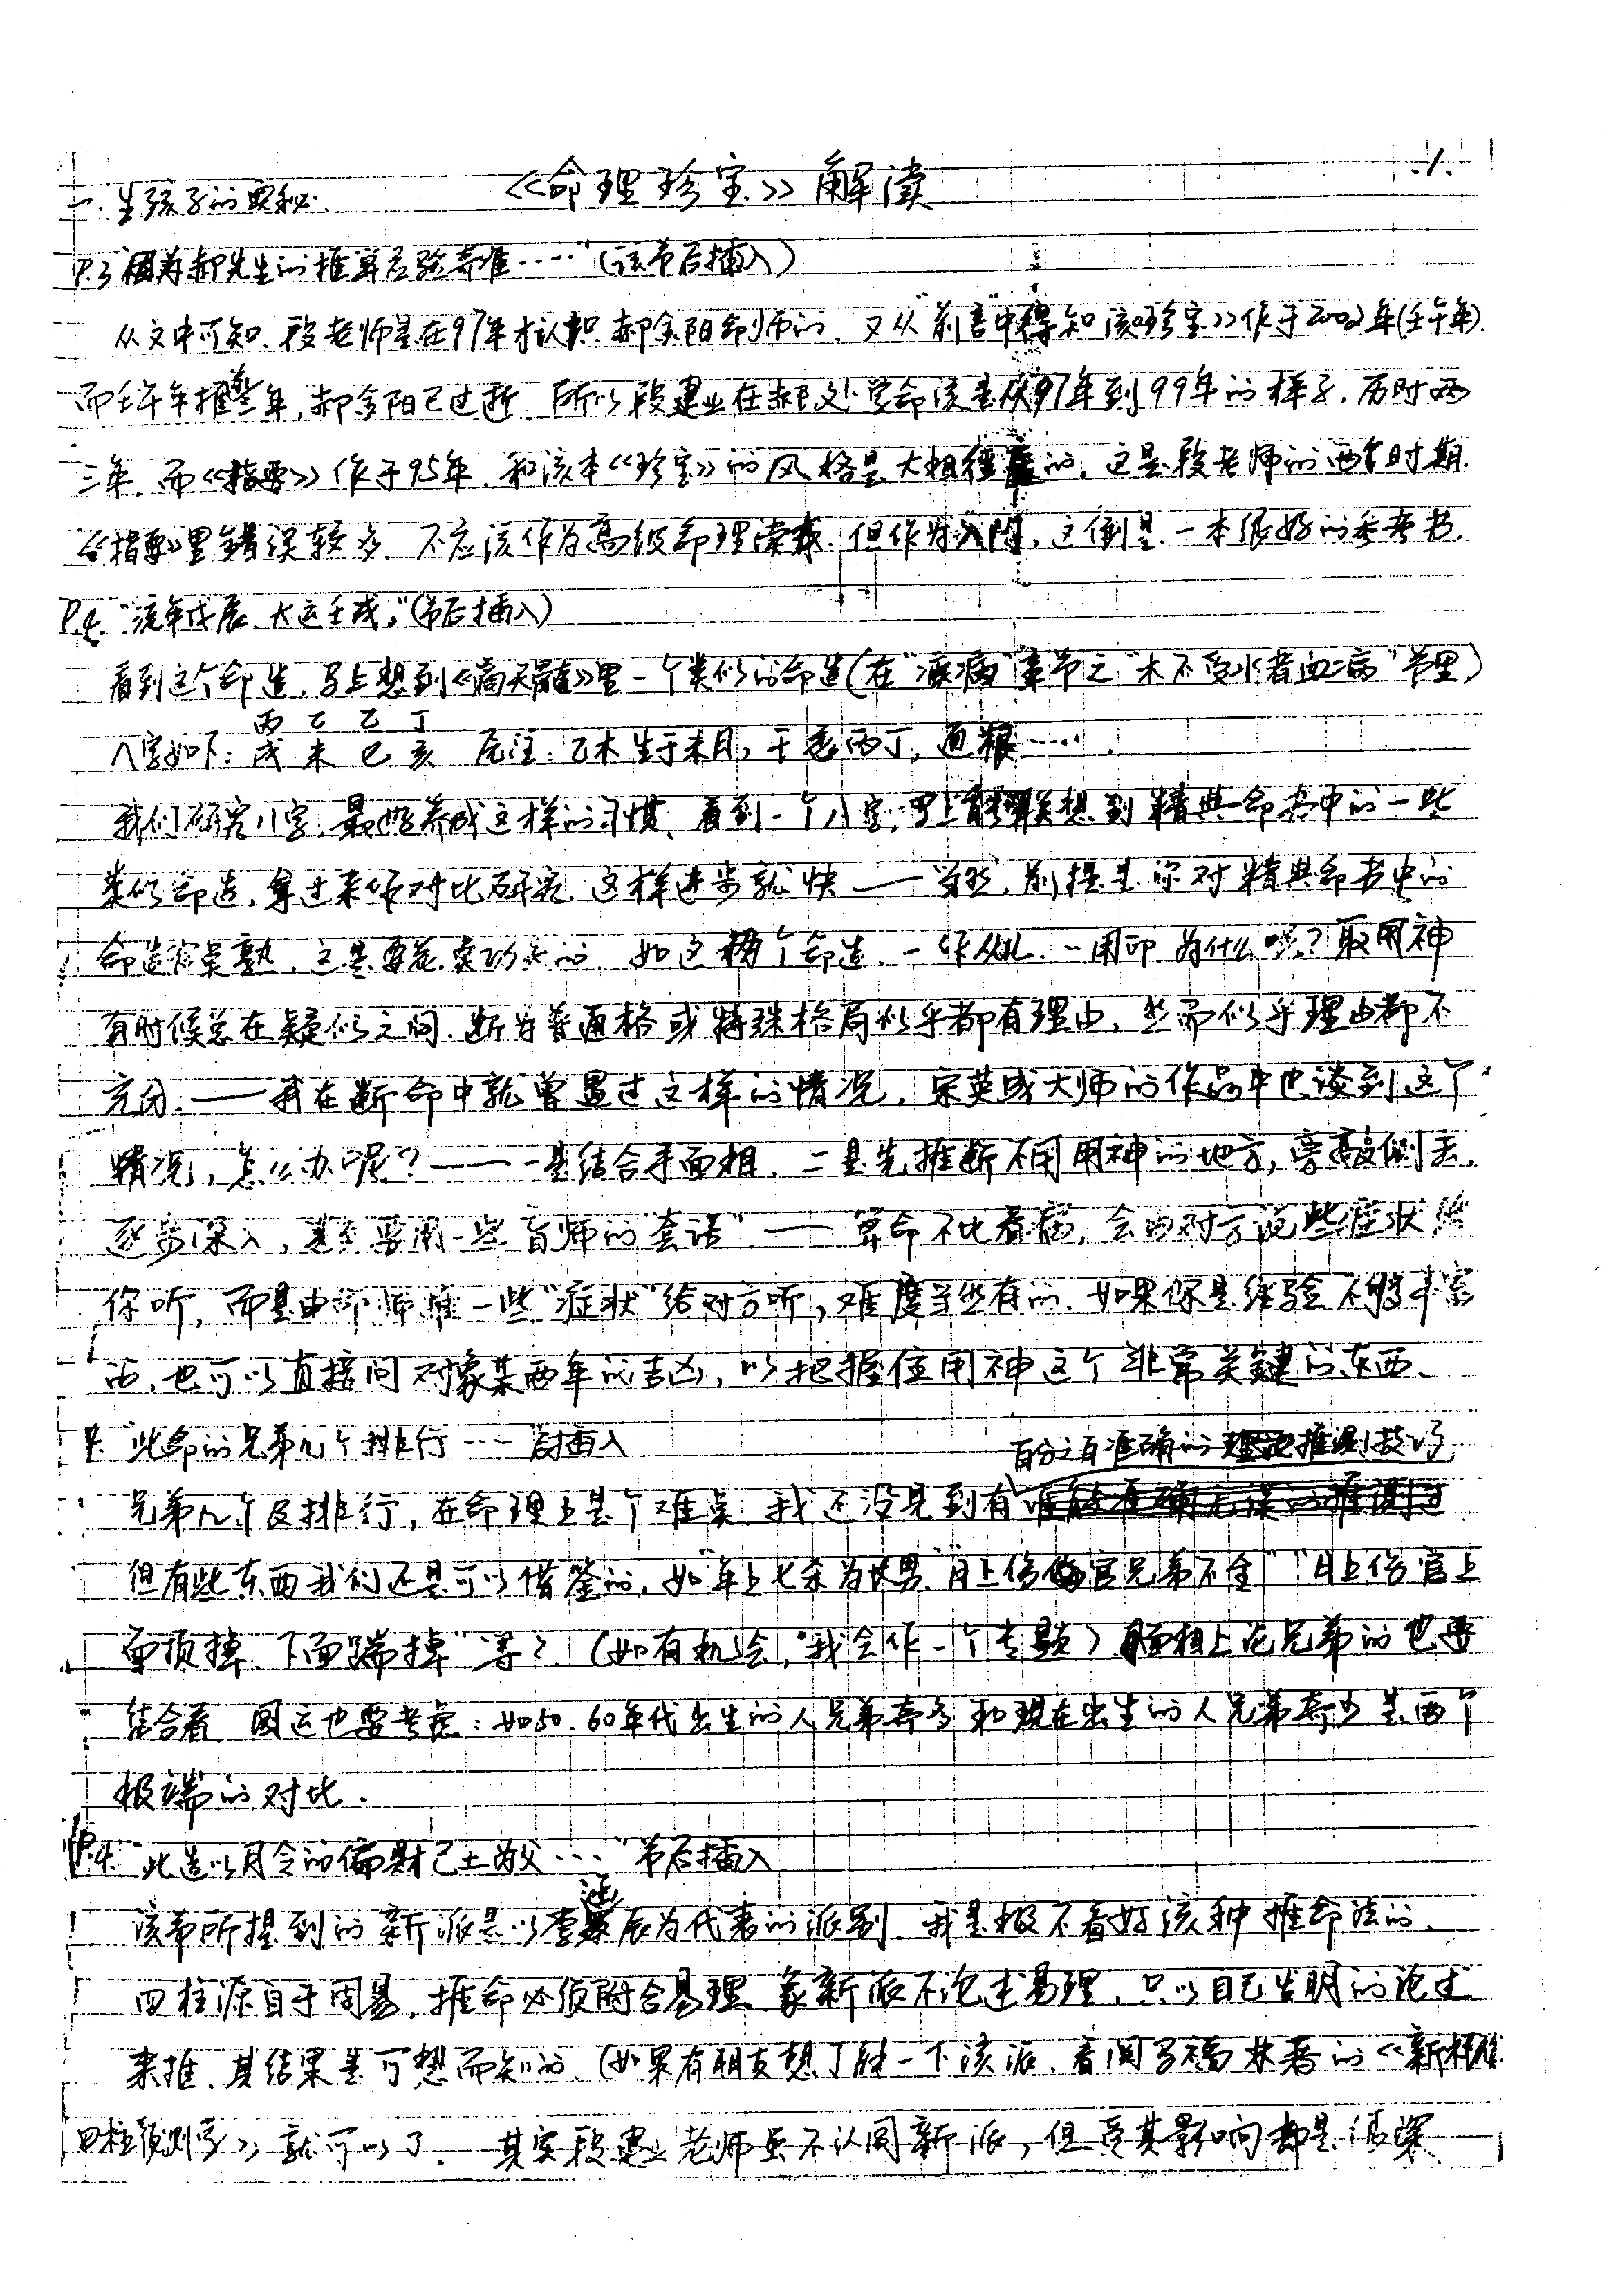 《命理珍宝》解读
.1.
一.生孩子的奥秘.
P.3"因为郝先生的推算应验奇准……"(该节后插入)
从文中可知,段老师是在97年才认识郝金阳命师的,又从"前言"中得知该《珍宝》作于2002年(壬午年).
而壬午年推三年,郝金阳已过逝,所以段建业在郝处学命该是从97年到99年的样子,历时两
三年,而《指要》作于95年,和该本《珍宝》的风格是大相径庭的,这是段老师的两个时期.
《指要》里错误较多,不应该作为高级命理,但作为入门,这倒是一本很好的参考书.
P.4."流年戊辰,大运壬戌,"(节后插入)
看到这个命造,马上想到《滴天髓》里一个类似的命造(在"疾病"章节之"木不受水者血病"节里)
丙 乙 乙 丁
八字如下:戌 未 巳 亥 原注:乙木生于未月,干透丙丁,通根……
我们研究八字,最好养成这样的习惯,看到一个八字,马上能联想到精典命书中的一些
类似命造,拿过来作对比研究,这样进步就快——当然,前提是你对精典命书中的
命造非常熟,这是要花实功夫的,如这两个命造,一作从儿,一用印,为什么呢?取用神
有时候总在疑似之间,断为普通格或特殊格局似乎都有理由,然而似乎理由都不
充分.——我在断命中就曾遇过这样的情况,宋英成大师的作品中也谈到这个
情况,怎么办呢?——一是结合手面相,二是先推断不用用神的地方,旁敲侧击,
逐步深入,甚至要用一些盲师的"套话"——算命不比看病,会由对方说些症状给
你听,而是由命师推一些"症状"给对方听,难度当然有的,如果你是经验不够丰富
的,也可以直接问对象某两年的吉凶,以把握住用神这个非常关键的东西.
P. "此命的兄弟几个排行……"后插入
百分之百准确的推测技巧
兄弟几个及排行,在命理上是个难点,我还没见到有
但有些东西我们还是可以借鉴的,如"年上七杀为长男""月上伤官兄弟不全""月上伤官上
面顶掉,下面踹掉"等?(如有机会,我会作一个专题)面相上论兄弟的也要
结合看,国运也要考虑:如50.60年代出生的人兄弟奇多和现在出生的人兄弟奇少是两个
极端的对比.
P.4."此造以月令的偏财己土为父……"节后插入
该节所提到的新派是以李涵辰为代表的派别,我是极不看好该种推命法的,
四柱源自于周易,推命必须附合易理,象新派不论述易理,只以自己发明的论述
来推,其结果是可想而知的,(如果有朋友想了解一下该派,看阅马福林著的《新标准
四柱预测学》就可以了.其实段建业老师虽不认同新派,但受其影响却是很深